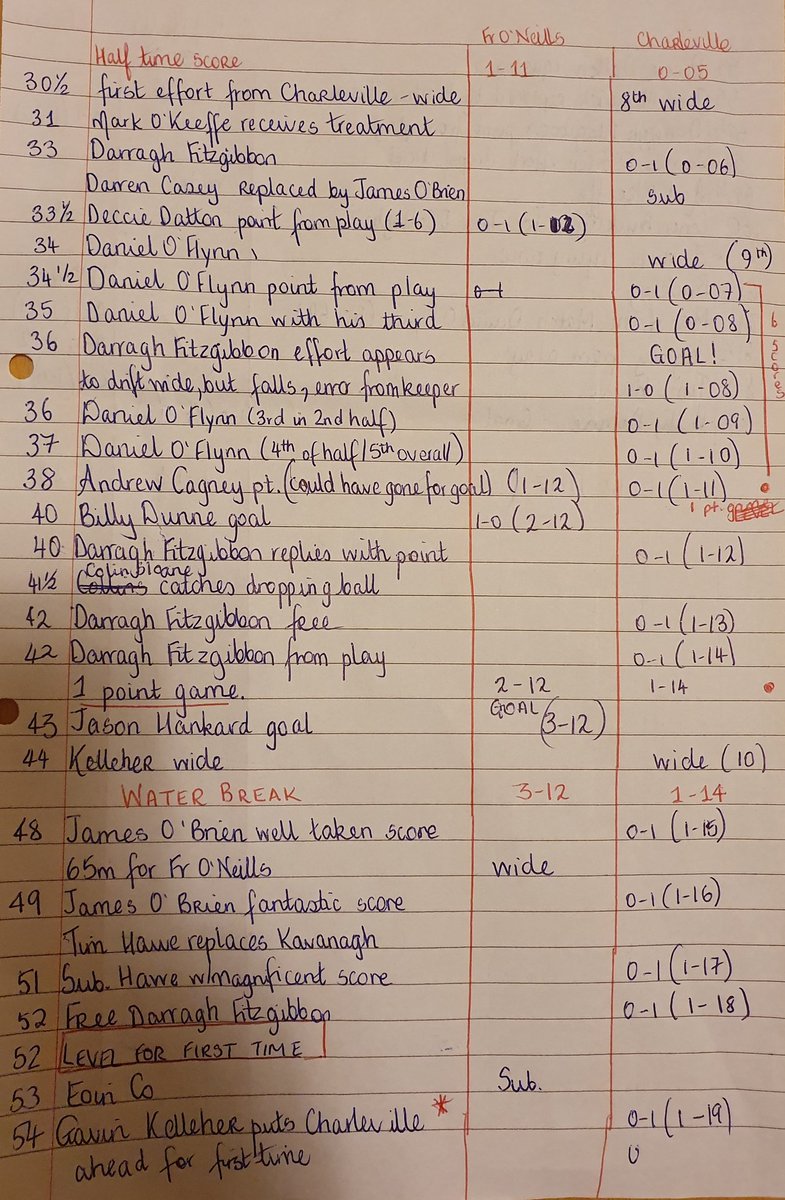 Fr O'Neills Charleville
Half time score 1-11 0-05
30½ first effort from Charleville - wide 8th wide
31 Mark O'Keeffe receives treatment
33 Darragh Fitzgibbon 0-1 (0-06)
Darren Casey replaced by James O'Brien sub
33½ Deccie Dalton point from play (1-6) 0-1 (1-12)
34 Daniel O'Flynn wide (9th)
34½ Daniel O'Flynn point from play 0-1 0-1 (0-07)
35 Daniel O'Flynn with his third 0-1 (0-08)
6 scores
36 Darragh Fitzgibbon effort appears GOAL!
to drift wide, but falls, error from keeper 1-0 (1-08)
36 Daniel O'Flynn (3rd in 2nd half) 0-1 (1-09)
37 Daniel O'Flynn (4th of half/5th overall) 0-1 (1-10)
38 Andrew Cagney pt. (could have gone for goal) (1-12) 0-1 (1-11)
1 pt. game
40 Billy Dunne goal 1-0 (2-12)
40 Darragh Fitzgibbon replies with point 0-1 (1-12)
41½ Colin Sloane catches dropping ball
42 Darragh Fitzgibbon free 0-1 (1-13)
42 Darragh Fitzgibbon from play 0-1 (1-14)
1 point game. 2-12 1-14
43 Jason Hankard goal GOAL (3-12)
44 Kelleher wide wide (10)
WATER BREAK 3-12 1-14
48 James O'Brien well taken score 0-1 (1-15)
65m for Fr O'Neills wide
49 James O'Brien fantastic score 0-1 (1-16)
Tim Hawe replaces Kavanagh
51 Sub. Hawe w/magnificent score 0-1 (1-17)
52 Free Darragh Fitzgibbon 0-1 (1-18)
52 LEVEL FOR FIRST TIME
53 Eoin Co Sub.
54 Gavin Kelleher puts Charleville * 0-1 (1-19)
ahead for first time